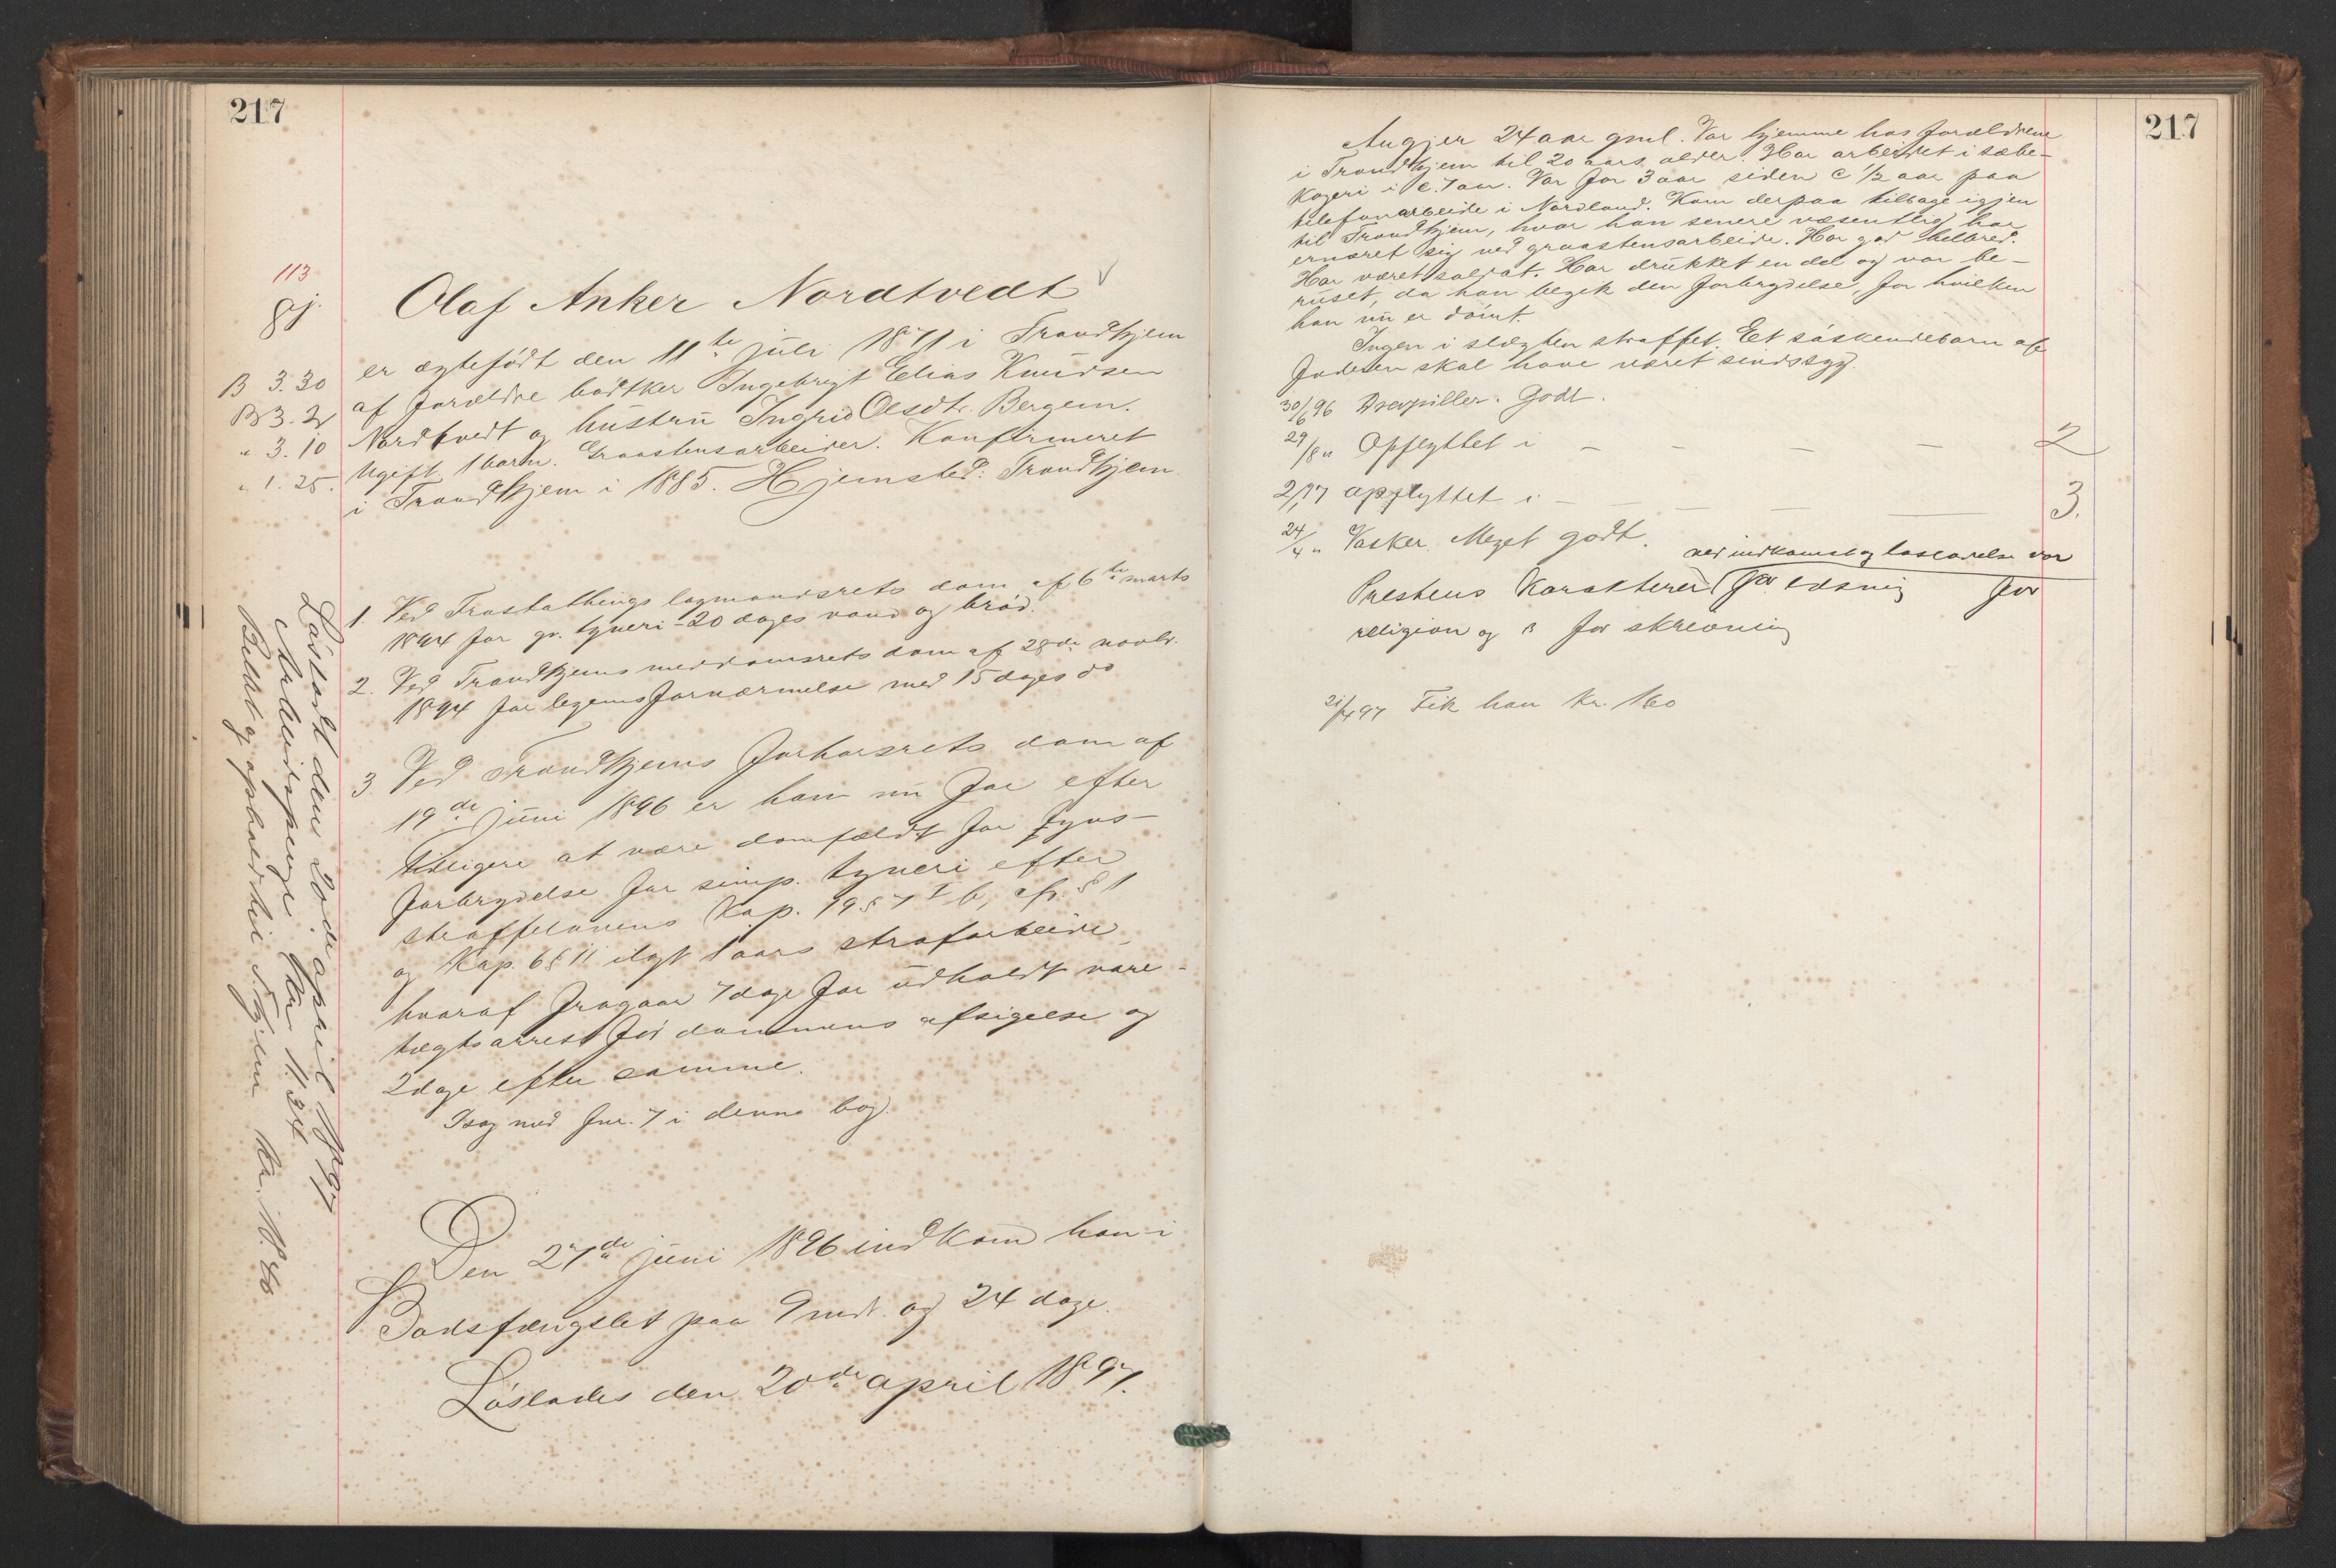 217
113
gj.
B 3.30
B 3.
" 3.10
" 1.25.
Olaf Anker Nordtvedt
er ægtefödt den 11te juli 1871 i Trondhjem
af forældre bödtker Ingebrigt Elias Knudsen
Nordtvedt og hustru Ingrid Olsdtr. Bergem.
Ugift. 1 barn. Graastensarbeider. Konfirmeret
i Trondhjem i 1885. Hjemsted: Trondhjem.
1. Ved Frostathings lagmandsrets dom af 6te marts
1894 for gr. tyveri - 20 dages vand og bröd.
2. Ved Trondhjems meddomsrets dom af 28de novbr.
1894 for legemsfornærmelse med 15 dages do
3. Ved Trondhjems forhörsrets dom af
19de juni 1896 er han nu for efter
tidligere at være domfældt for tyvs-
forbrydelse for simp. tyveri efter
straffelovens Kap. 19 § 7 I b, cfr. § 1
og Kap. 6 § 11 ilagt 1 aars strafarbeide,
hvoraf fragaar 7 dage for udholdt vare-
tægtsarrest för dommens afsigelse og
2 dage efter samme.
I sag med fnr. 7 i denne bog.
Den 27de juni 1896 indkom han i
Bodsfængslet paa 9 mdr. og 24 dage.
Löslades den 20de april 1897.
Löslodt den 20de april 1897
Arbeidspenge kr. 11.34
Billet og ophold til T.hjem kr. 18.80
217
Angjer 24 aar gml. Var hjemme hos forældrene
i Trondhjem til 20 aars alder. Har arbeidet i sæbe-
kogeri i c. 7 aar. Var for 3 aar siden c 1/2 aar paa
telefonarbeide i Nordland. Kom derpaa tilbage igjen
til Trondhjem, hvor han senere væsentlig har
ernæret sig ved graastensarbeide. Har god helbred.
Har været soldat. Har drukket en del og var be-
ruset, da han begik den forbrydelse, for hvilken
han nu er dömt.
Ingen i slægten straffet. Et söskendebarn af
faderen skal have været sindssyg.
30/6 96 Drevpiller. Godt.
29/8 " Opflyttet i – – – – 2
2/1 97 opflyttet i – – – – 3.
24/4 " Vasker. Meget godt.
ved indkomst og lösladelse var
Prestens Karakterer for læsning for
religion og 3 for skrivning
21/4 97 Fik han kr. 160